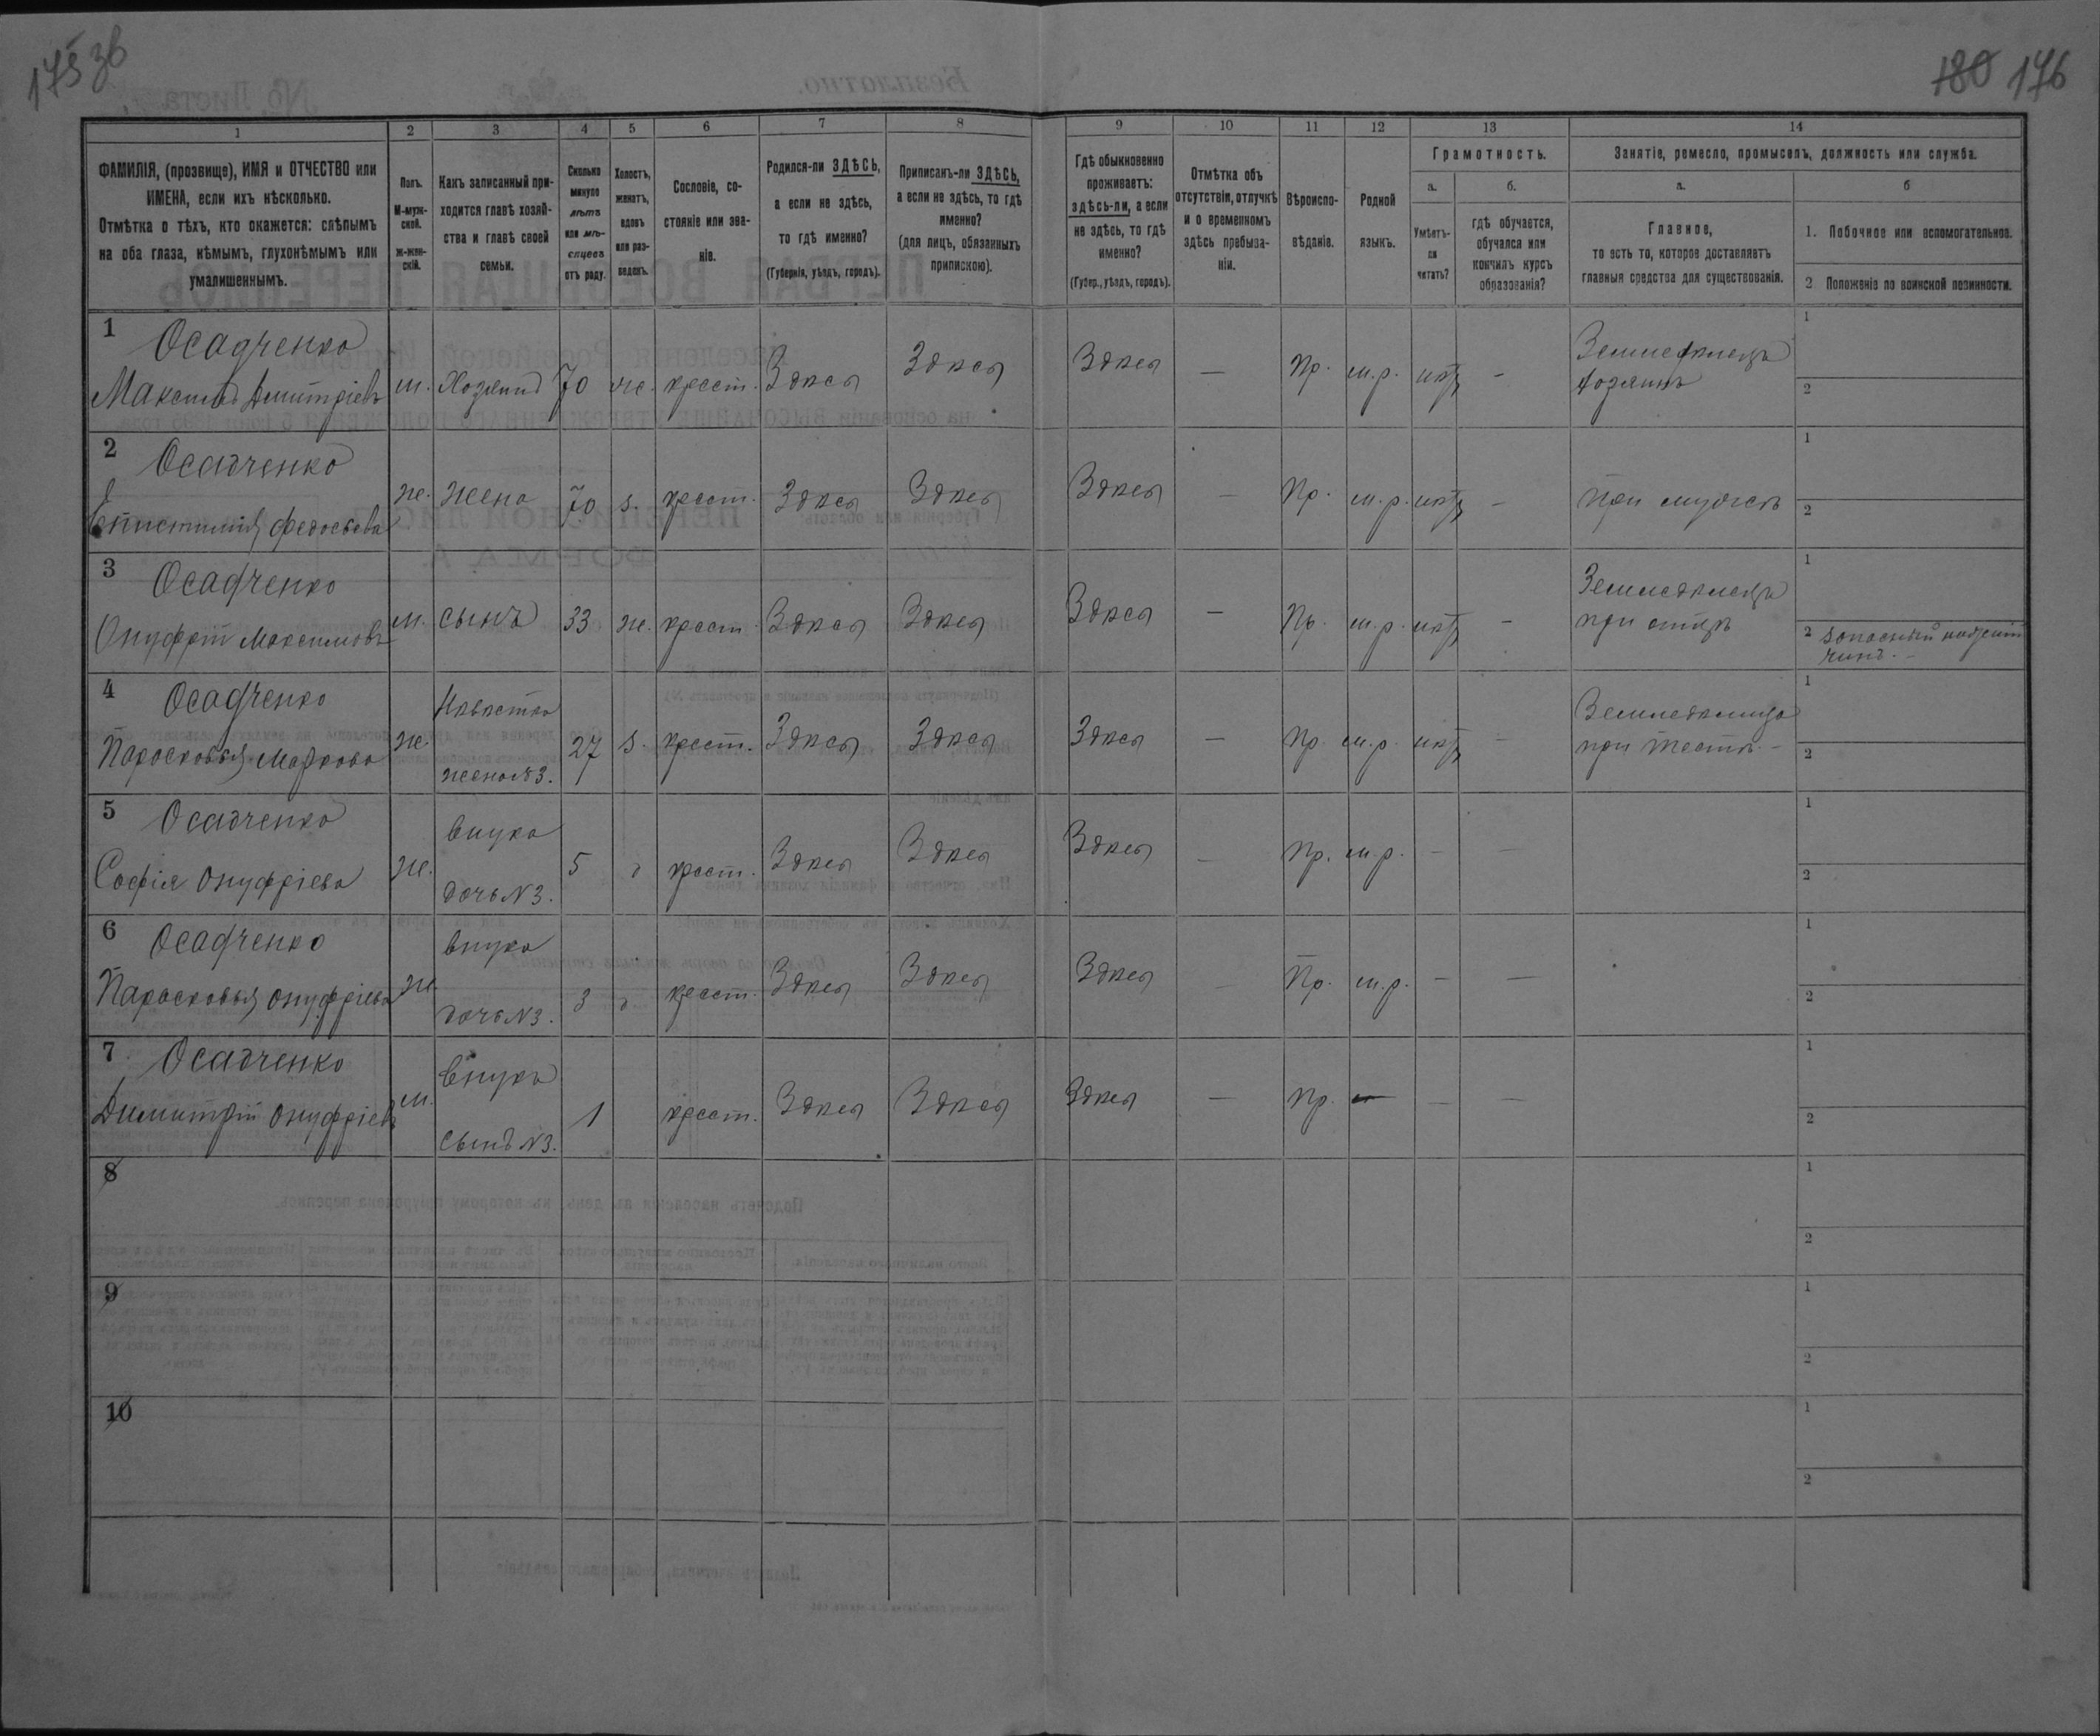 175 зв
180 176
1 2 3 4 5 6 7 8 9 10 11 12 13 14
ФАМИЛІЯ, (прозвище), ИМЯ и ОТЧЕСТВО или
ИМЕНА, если ихъ нѣсколько.
Отмѣтка о тѣхъ, кто окажется: слѣпымъ
на оба глаза, нѣмымъ, глухонѣмымъ или
умалишеннымъ.
Полъ.
М-муж-
ской.
ж-жен-
скій.
Какъ записанный при-
ходится главѣ хозяй-
ства и главѣ своей
семьи.
Сколько
минуло
лѣтъ
или мѣ-
сяцевъ
отъ роду.
Холостъ,
женатъ,
вдовъ
или раз-
веденъ.
Сословіе, со-
стояніе или зва-
ніе.
Родился-ли ЗДѢСЬ,
а если не здѣсь,
то гдѣ именно?
(Губернія, уѣздъ, городъ).
Приписанъ-ли ЗДѢСЬ,
а если не здѣсь, то гдѣ
именно?
(для лицъ, обязанныхъ
припискою).
Гдѣ обыкновенно
проживаетъ:
здѣсь-ли, а если
не здѣсь, то гдѣ
именно?
(Губер., уѣздъ, городъ).
Отмѣтка объ
отсутствіи, отлучкѣ
и о временномъ
здѣсь пребыва-
ніи.
Вѣроиспо-
вѣданіе.
Родной
языкъ.
Грамотность.
а.
Умѣетъ-
ли
читать?
б.
гдѣ обучается,
обучался или
кончилъ курсъ
образованія?
Занятіе, ремесло, промыселъ, должность или служба.
а.
Главное,
то есть то, которое доставляетъ
главныя средства для существованія.
б
1. Побочное или вспомогательное.
2 Положеніе по воинской повинности.
1 Осадченко
Максимъ Дмитріевъ м. Хозяинъ 70 ж. крест. Здѣсь Здѣсь Здѣсь — Пр. м.р. нѣтъ -
Земледѣлецъ
хозяинъ
1
2
2 Осадченко
Епистимія Федосѣева ж. жена 70 з. крест. Здѣсь Здѣсь Здѣсь — Пр. м.р. нѣтъ — при мужѣ
1
2
3 Осадченко
Онуфрій Максимовъ м. сынъ 33 ж. крест. Здѣсь Здѣсь Здѣсь — Пр. м.р. нѣтъ -
Земледѣлецъ
при отцѣ
1
2 запасный нижній
чинъ.-
4 Осадченко
Парасковья Маркова ж.
Невѣстка
жена №3.
27 з. крест. Здѣсь Здѣсь Здѣсь — Пр. м.р. нѣтъ —
Земледѣлица
при тестѣ.-
1
2
5 Осадченко
Софія Онуфріева ж.
внука
дочь №3.
5 д крест. Здѣсь Здѣсь Здѣсь — Пр. м.р. — —
1
2
6 Осадченко
Парасковья Онуфріева ж.
внука
дочь №3.
3 д крест. Здѣсь Здѣсь Здѣсь — Пр. м.р. — —
1
2
7 Осадченко
Димитрій Онуфріевъ м.
внукъ
сынъ №3.
1 крест. Здѣсь Здѣсь Здѣсь — Пр. — — —
1
2
8
1
2
9
1
2
10
1
2